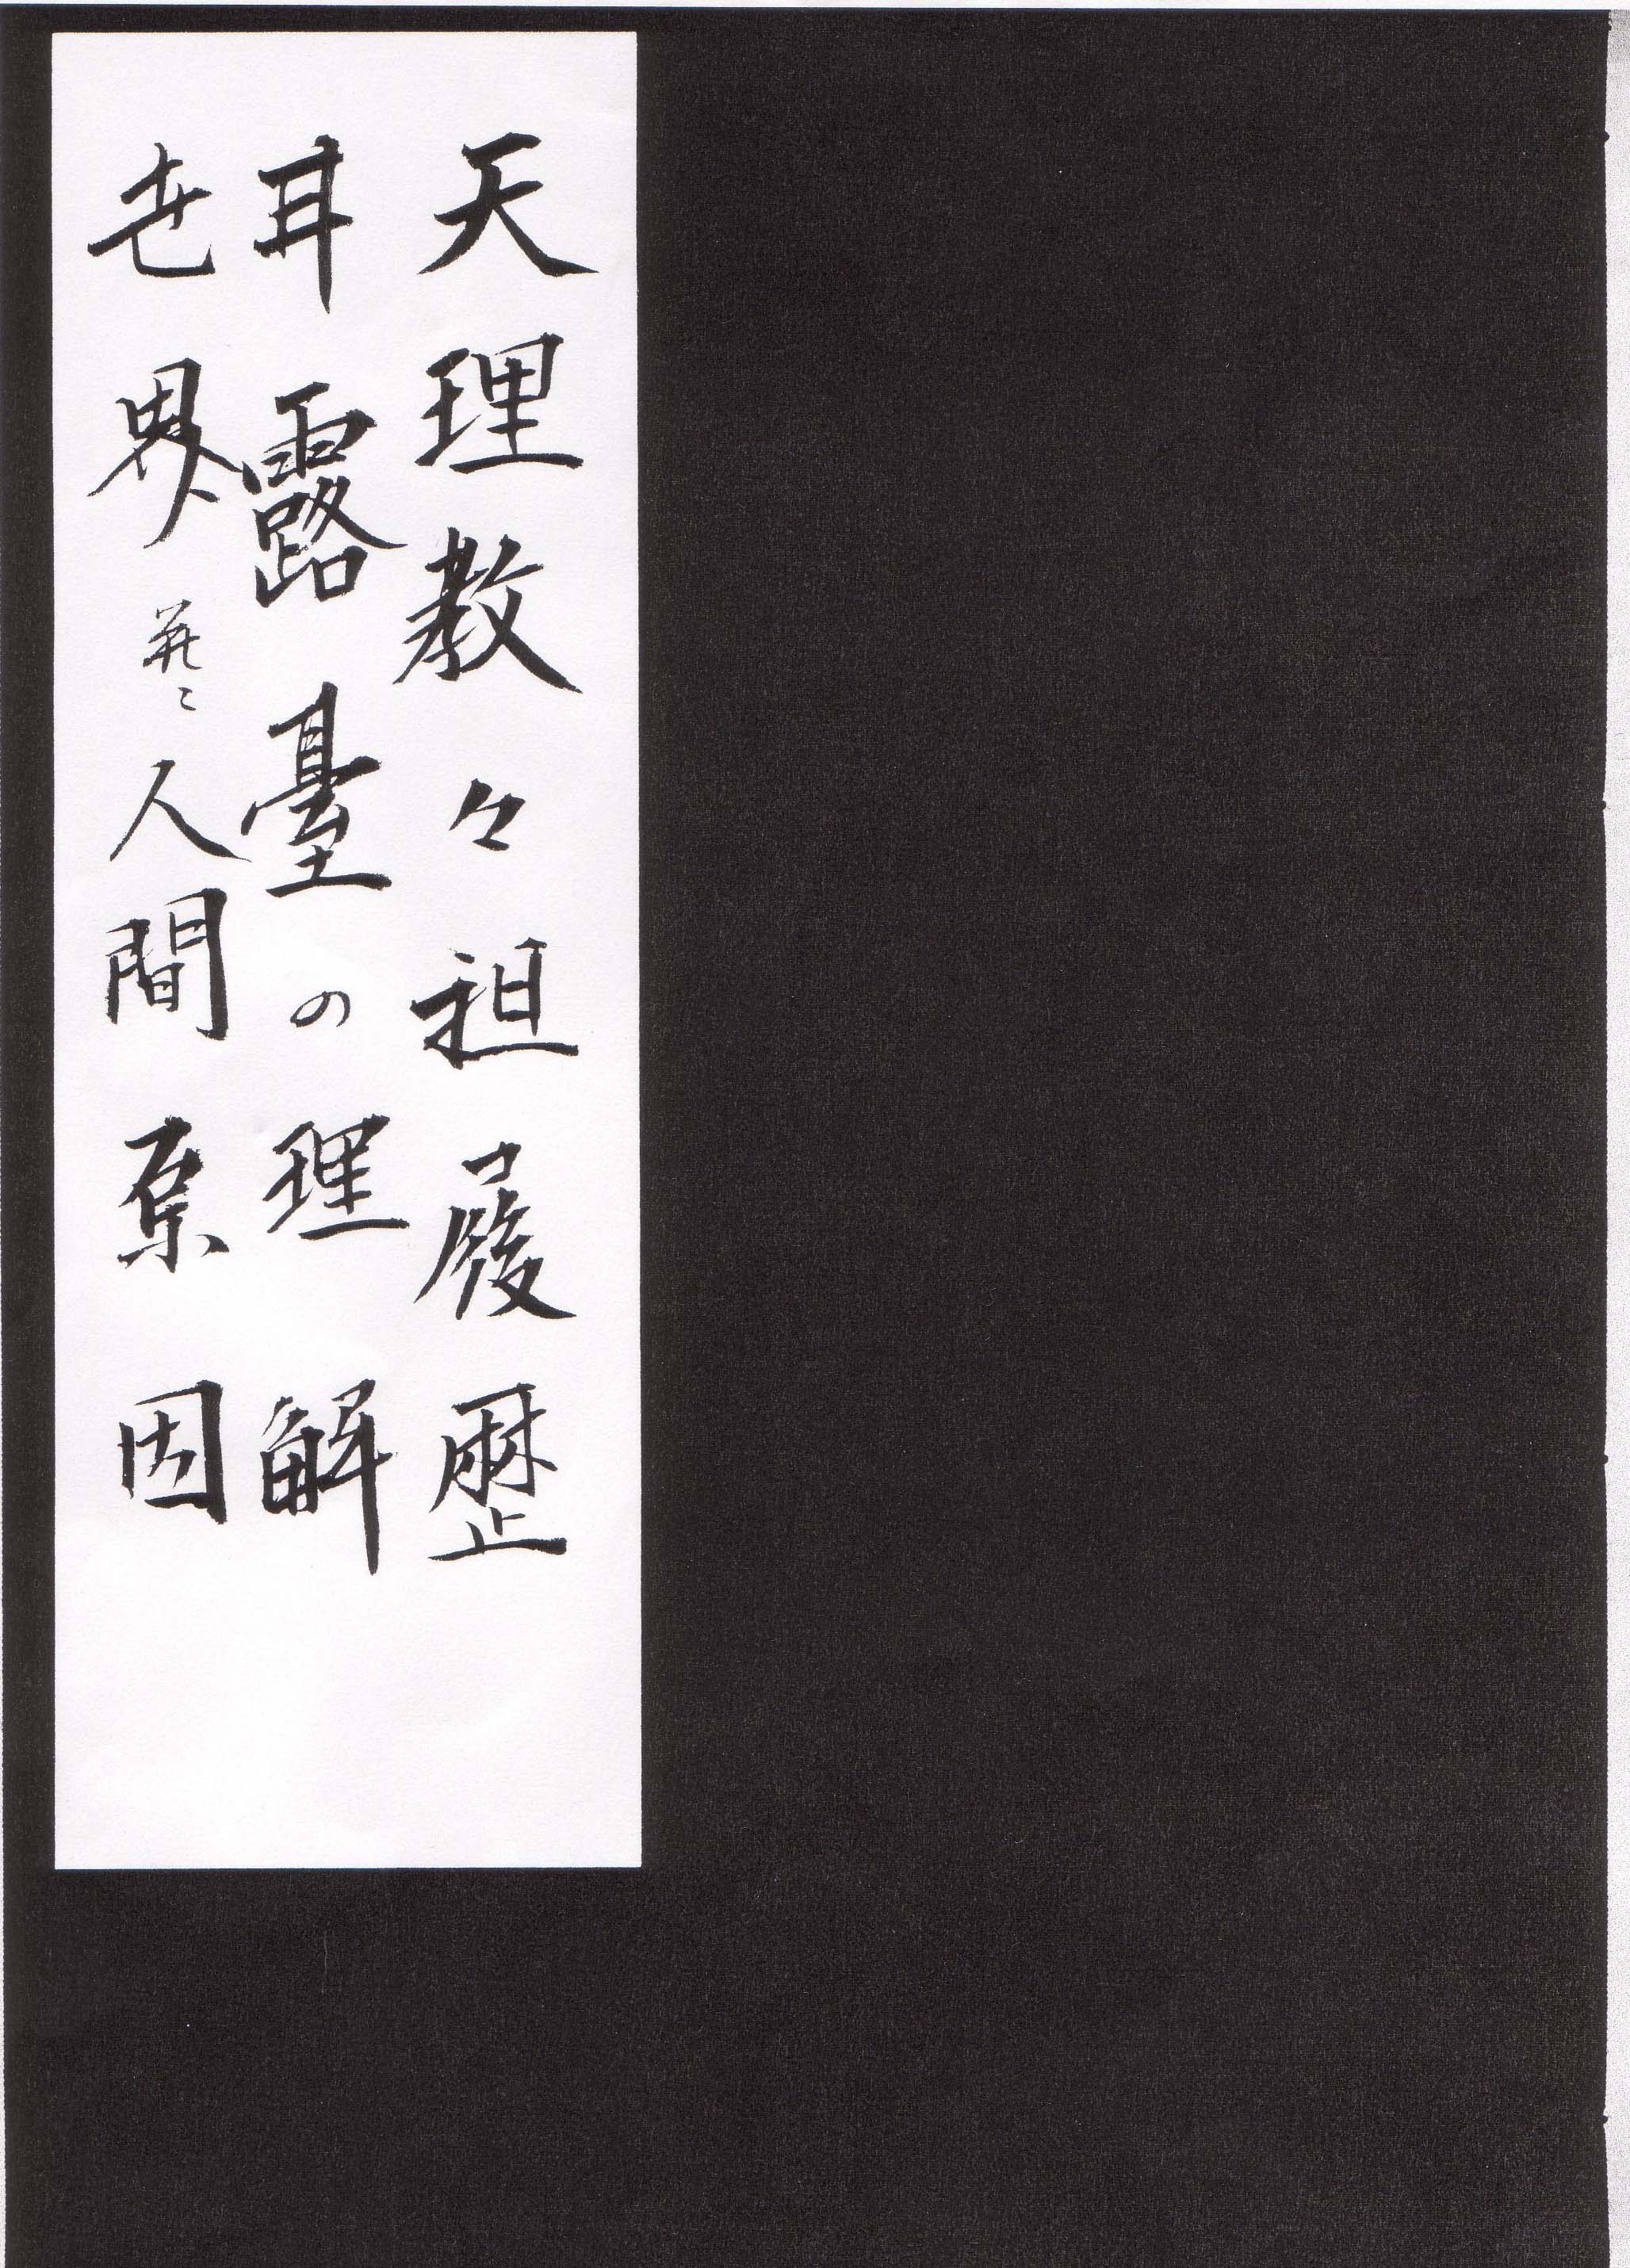 天理教々祖履歴
甘露臺の理解
世界并ニ人間原因